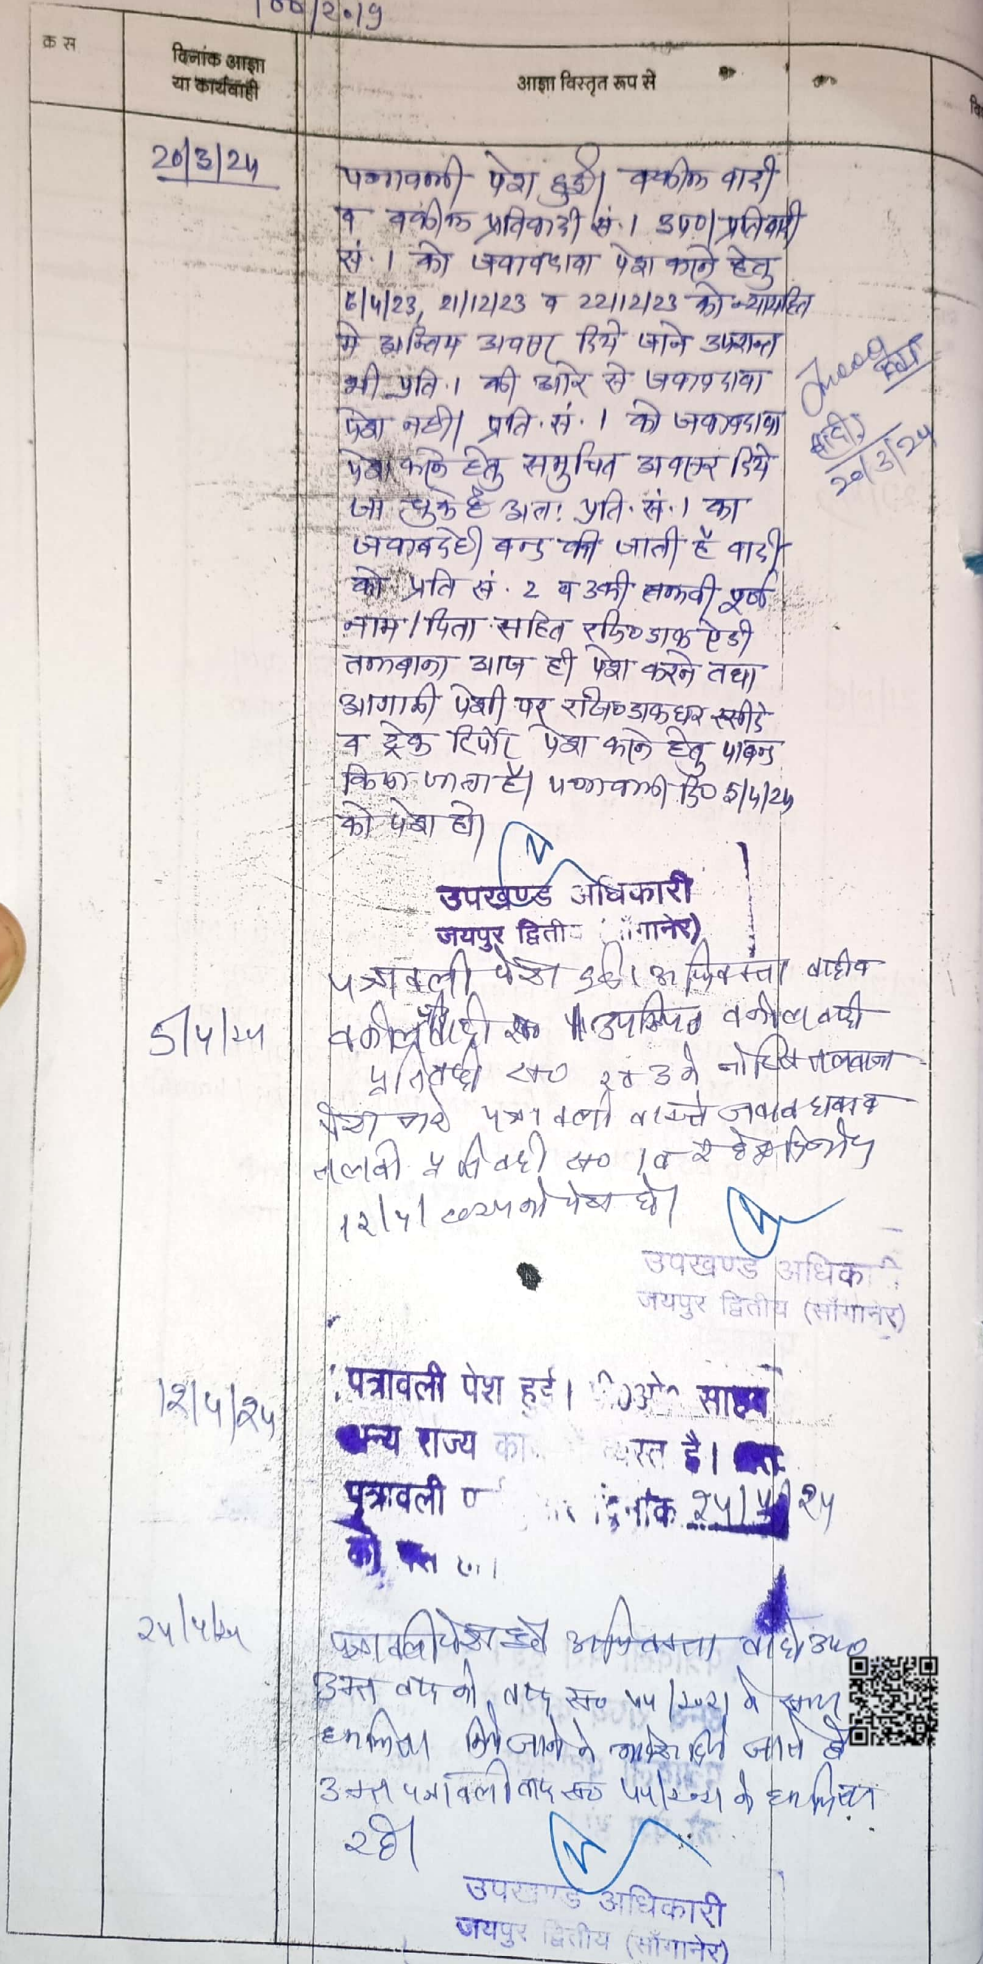 100/2019
क्र स
दिनांक आज्ञा
या कार्यवाही
आज्ञा विस्तृत रूप से
20/3/24
पत्रावली पेश हुई। वकील वादी
व वकील प्रतिवादी सं. 1 उप0। प्रतिवादी
सं. 1 को जवाबदावा पेश करने हेतु
6/4/23, 21/12/23 व 22/12/23 को न्यायहित
मे अन्तिम अवसर दिये जाने उपरान्त
भी प्रति. 1 की ओर से जवाबदावा
पेश नही। प्रति. सं. 1 को जवाबदावा
पेश करने हेतु समुचित अवसर दिये
जा चुके है अतः प्रति. सं. 1 का
जवाबदेही बन्द की जाती है वादी
को प्रति सं. 2 व 3 की तलवी पूर्ण
नाम / पिता सहित रजि0 डाक ऐडी
तलबाना आज ही पेश करने तथा
आगामी पेशी पर रजि0 डाकघर रसीदे
व ट्रेक रिपोर्ट पेश करने हेतु पाबन्द
किया जाता है। पत्रावली दि0 5/4/24
को पेश हो।
20/3/24
उपखण्ड अधिकारी
जयपुर द्वितीय (साँगानेर)
5/4/24
पत्रावली पेश हुई। अधिवक्ता वादी व
वकील प्रतिवादी स0 1 उपस्थित वकील वादी
प्रतिवादी स0 2 व 3 के नोटिस तलवाना
पेश करे पत्रावली वास्ते जवाब दावा व
तलवी प्रतिवादी स0 1 व 2 हेतु दिनांक
12/4/2024 को पेश हो।
उपखण्ड अधिकारी
जयपुर द्वितीय (साँगानेर)
12/4/24
पत्रावली पेश हुई। पी0ओ0 साहब
अन्य राज्य कार्य में व्यस्त है। अतः
पत्रावली दिनांक 24/4/24
को पेश हो।
24/4/24
पत्रावली पेश हुई अधिवक्ता वादी उप0
उक्त वाद को वाद स0 44/2021 के साथ
हमलिया किये जाने के आदेश दिये जाते है
उक्त पत्रावली वाद स0 44/2021 के हमलिया
रहे।
उपखण्ड अधिकारी
जयपुर द्वितीय (साँगानेर)